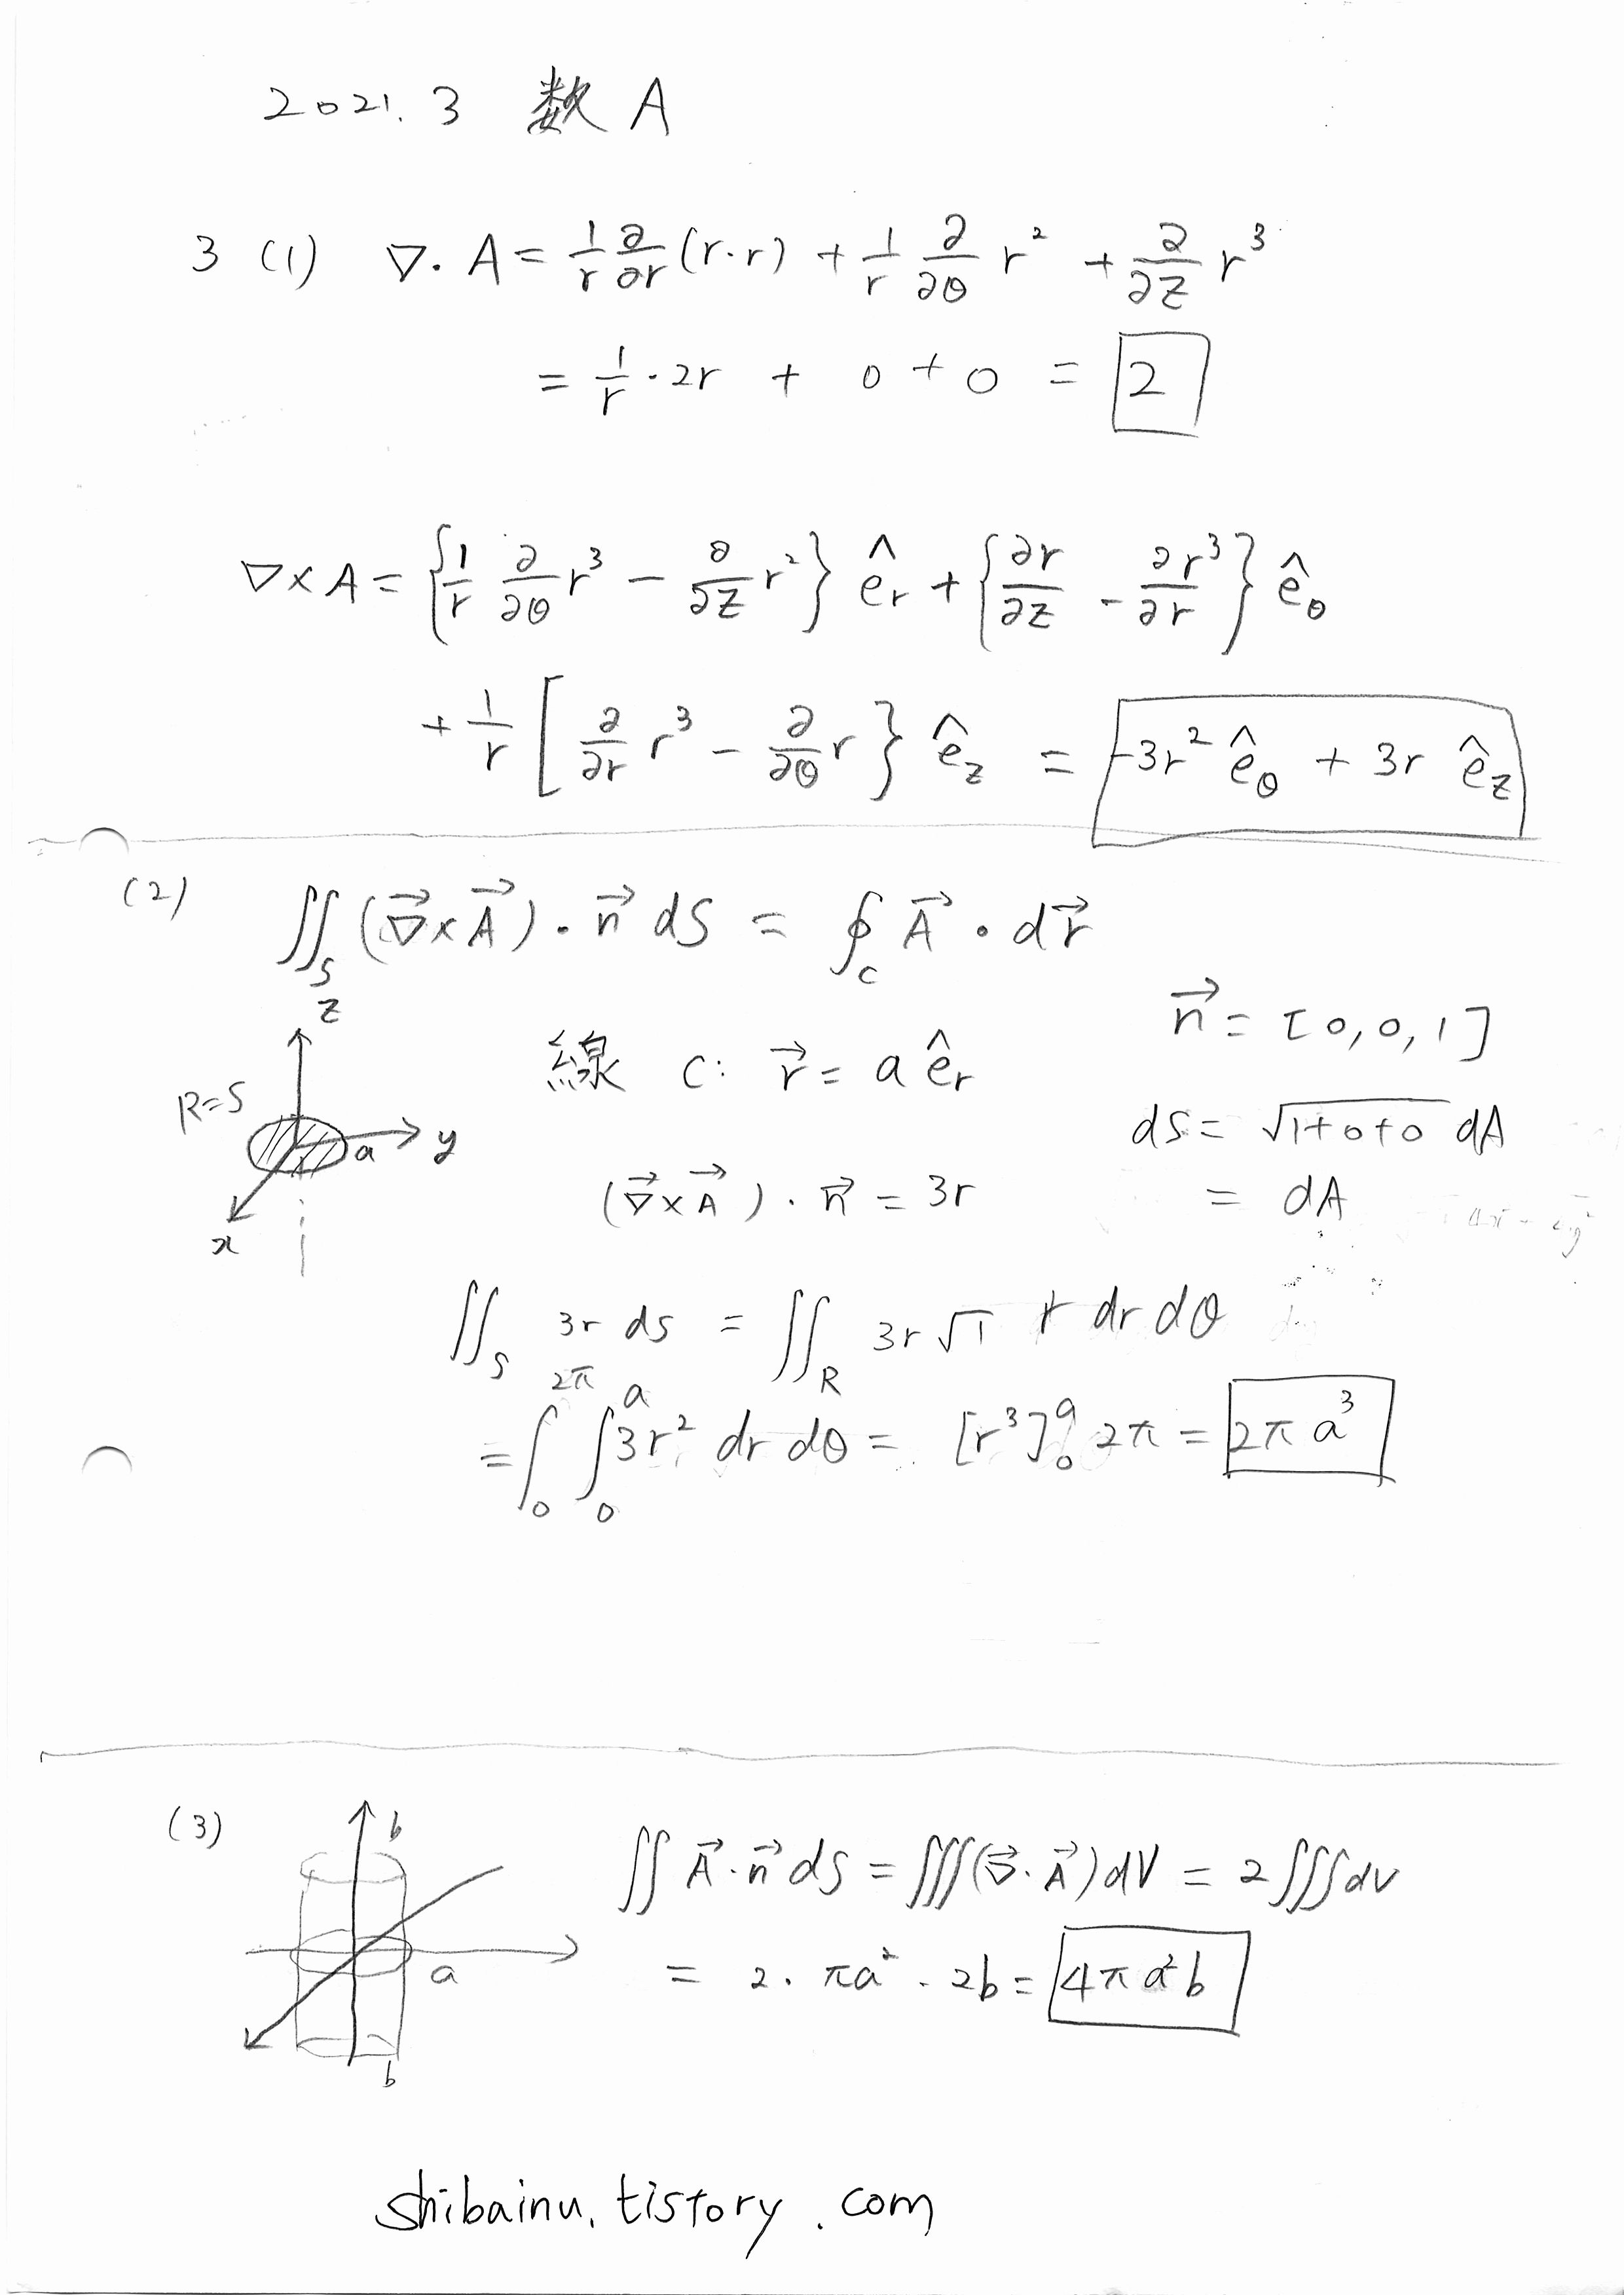 2021. 3 数 A
3 (1) ∇・A = 1/r ∂/∂r (r・r) + 1/r ∂/∂θ r² + ∂/∂z r³
= 1/r・2r + 0 + 0 = 2
∇×A = {1/r ∂/∂θ r³ − ∂/∂z r²} ê_r + {∂r/∂z − ∂r³/∂r} ê_θ
+ 1/r [∂/∂r r³ − ∂/∂θ r} ê_z = −3r² ê_θ + 3r ê_z
(2) ∬_S (∇⃗×A⃗)・n⃗ dS = ∮_C A⃗・dr⃗
n⃗ = [0, 0, 1]
線 C: r⃗ = a ê_r
dS = √(1+0+0) dA
= dA
z
R=S
a
y
x
(∇⃗×A⃗)・n⃗ = 3r
∬_S 3r dS = ∬_R 3r √1 r dr dθ
= ∫_0^2π ∫_0^a 3r² dr dθ = [r³]_0^a 2π = 2πa³
(3)
b
a
b
∬ A⃗・n⃗ dS = ∭(∇⃗・A⃗) dV = 2∭dV
= 2・πa²・2b = 4πa²b
shibainu.tistory.com